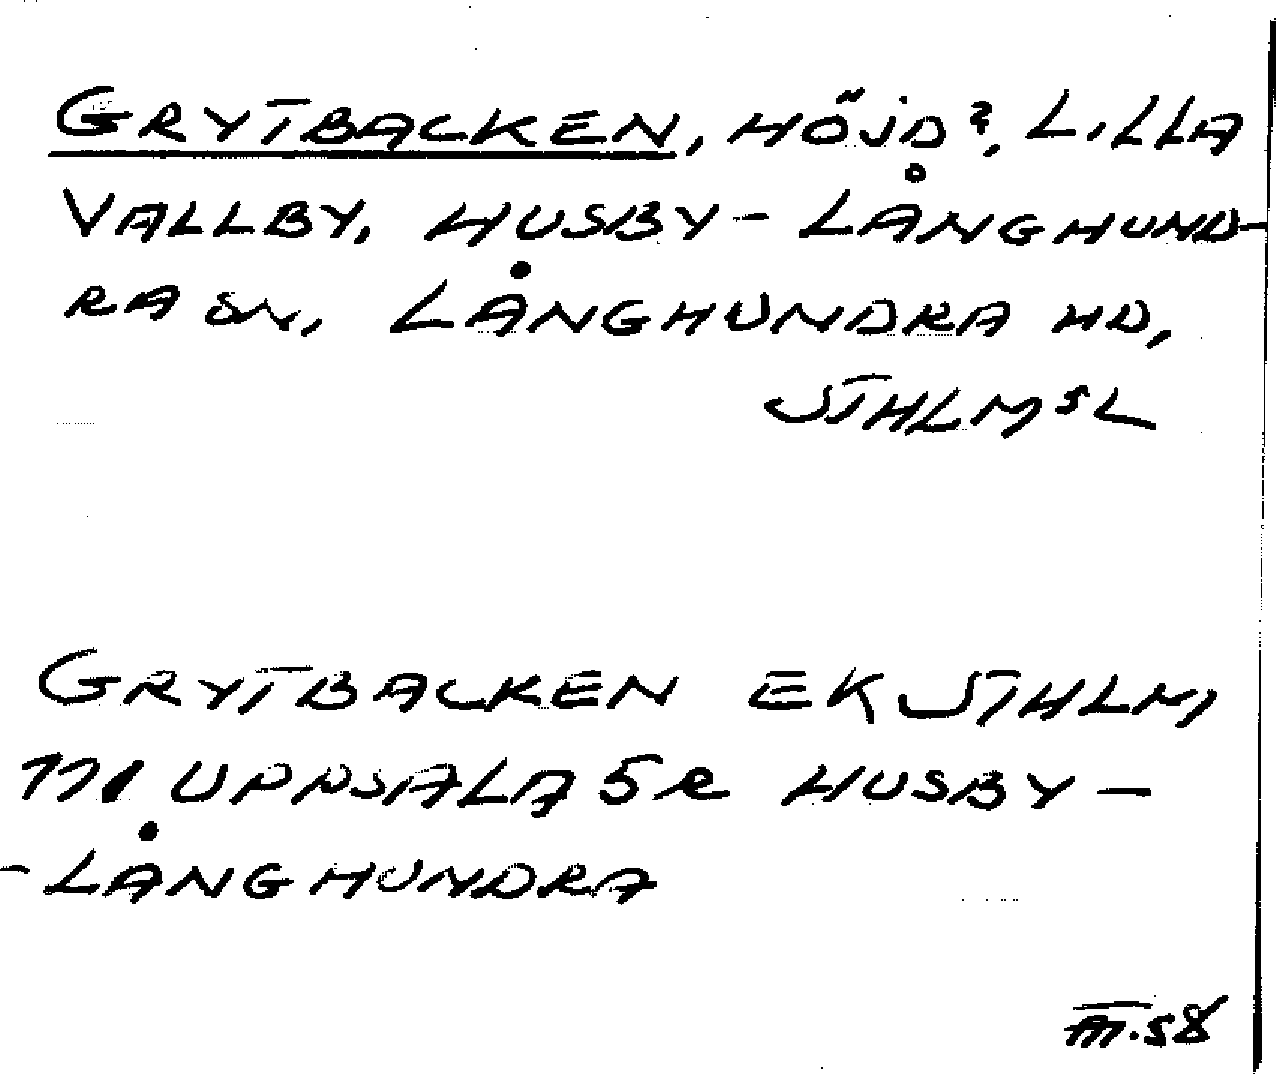 GRYTBACKEN, HÖJD?, L. LILLA
VALLBY, HUSBY-LÅNGHUND-
RA SN, LÅNGHUNDRA HD,
STHLMS L
GRYTBACKEN EK STHLM,
110 UPPSALA 5R HUSBY-
-LÅNGHUNDRA